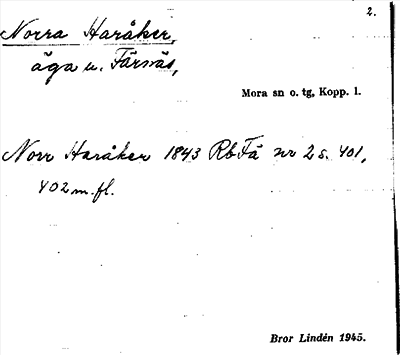 2.
Norra Haråker,
äga u. Färnäs,
Mora sn o. tg, Kopp. l.
Norr Haråker 1843 Rb Fä nr 2 s. 401,
402 m.fl.
Bror Lindén 1945.